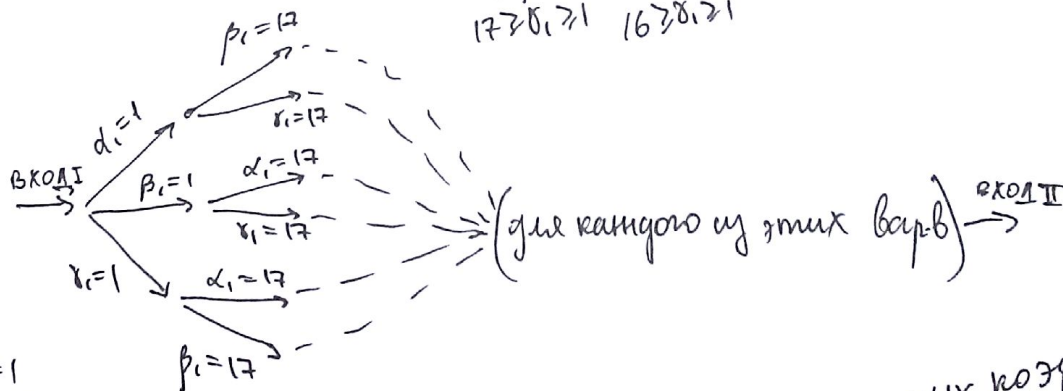 17≥γ₁≥1 16≥γ₁≥1
β₁=17
α₁=1
γ₁=17
ВХОД I
β₁=1
α₁=17
γ₁=17
(для каждого из этих вар-в)
ВХОД II
γ₁=1
α₁=17
β₁=17
=1
их коэ